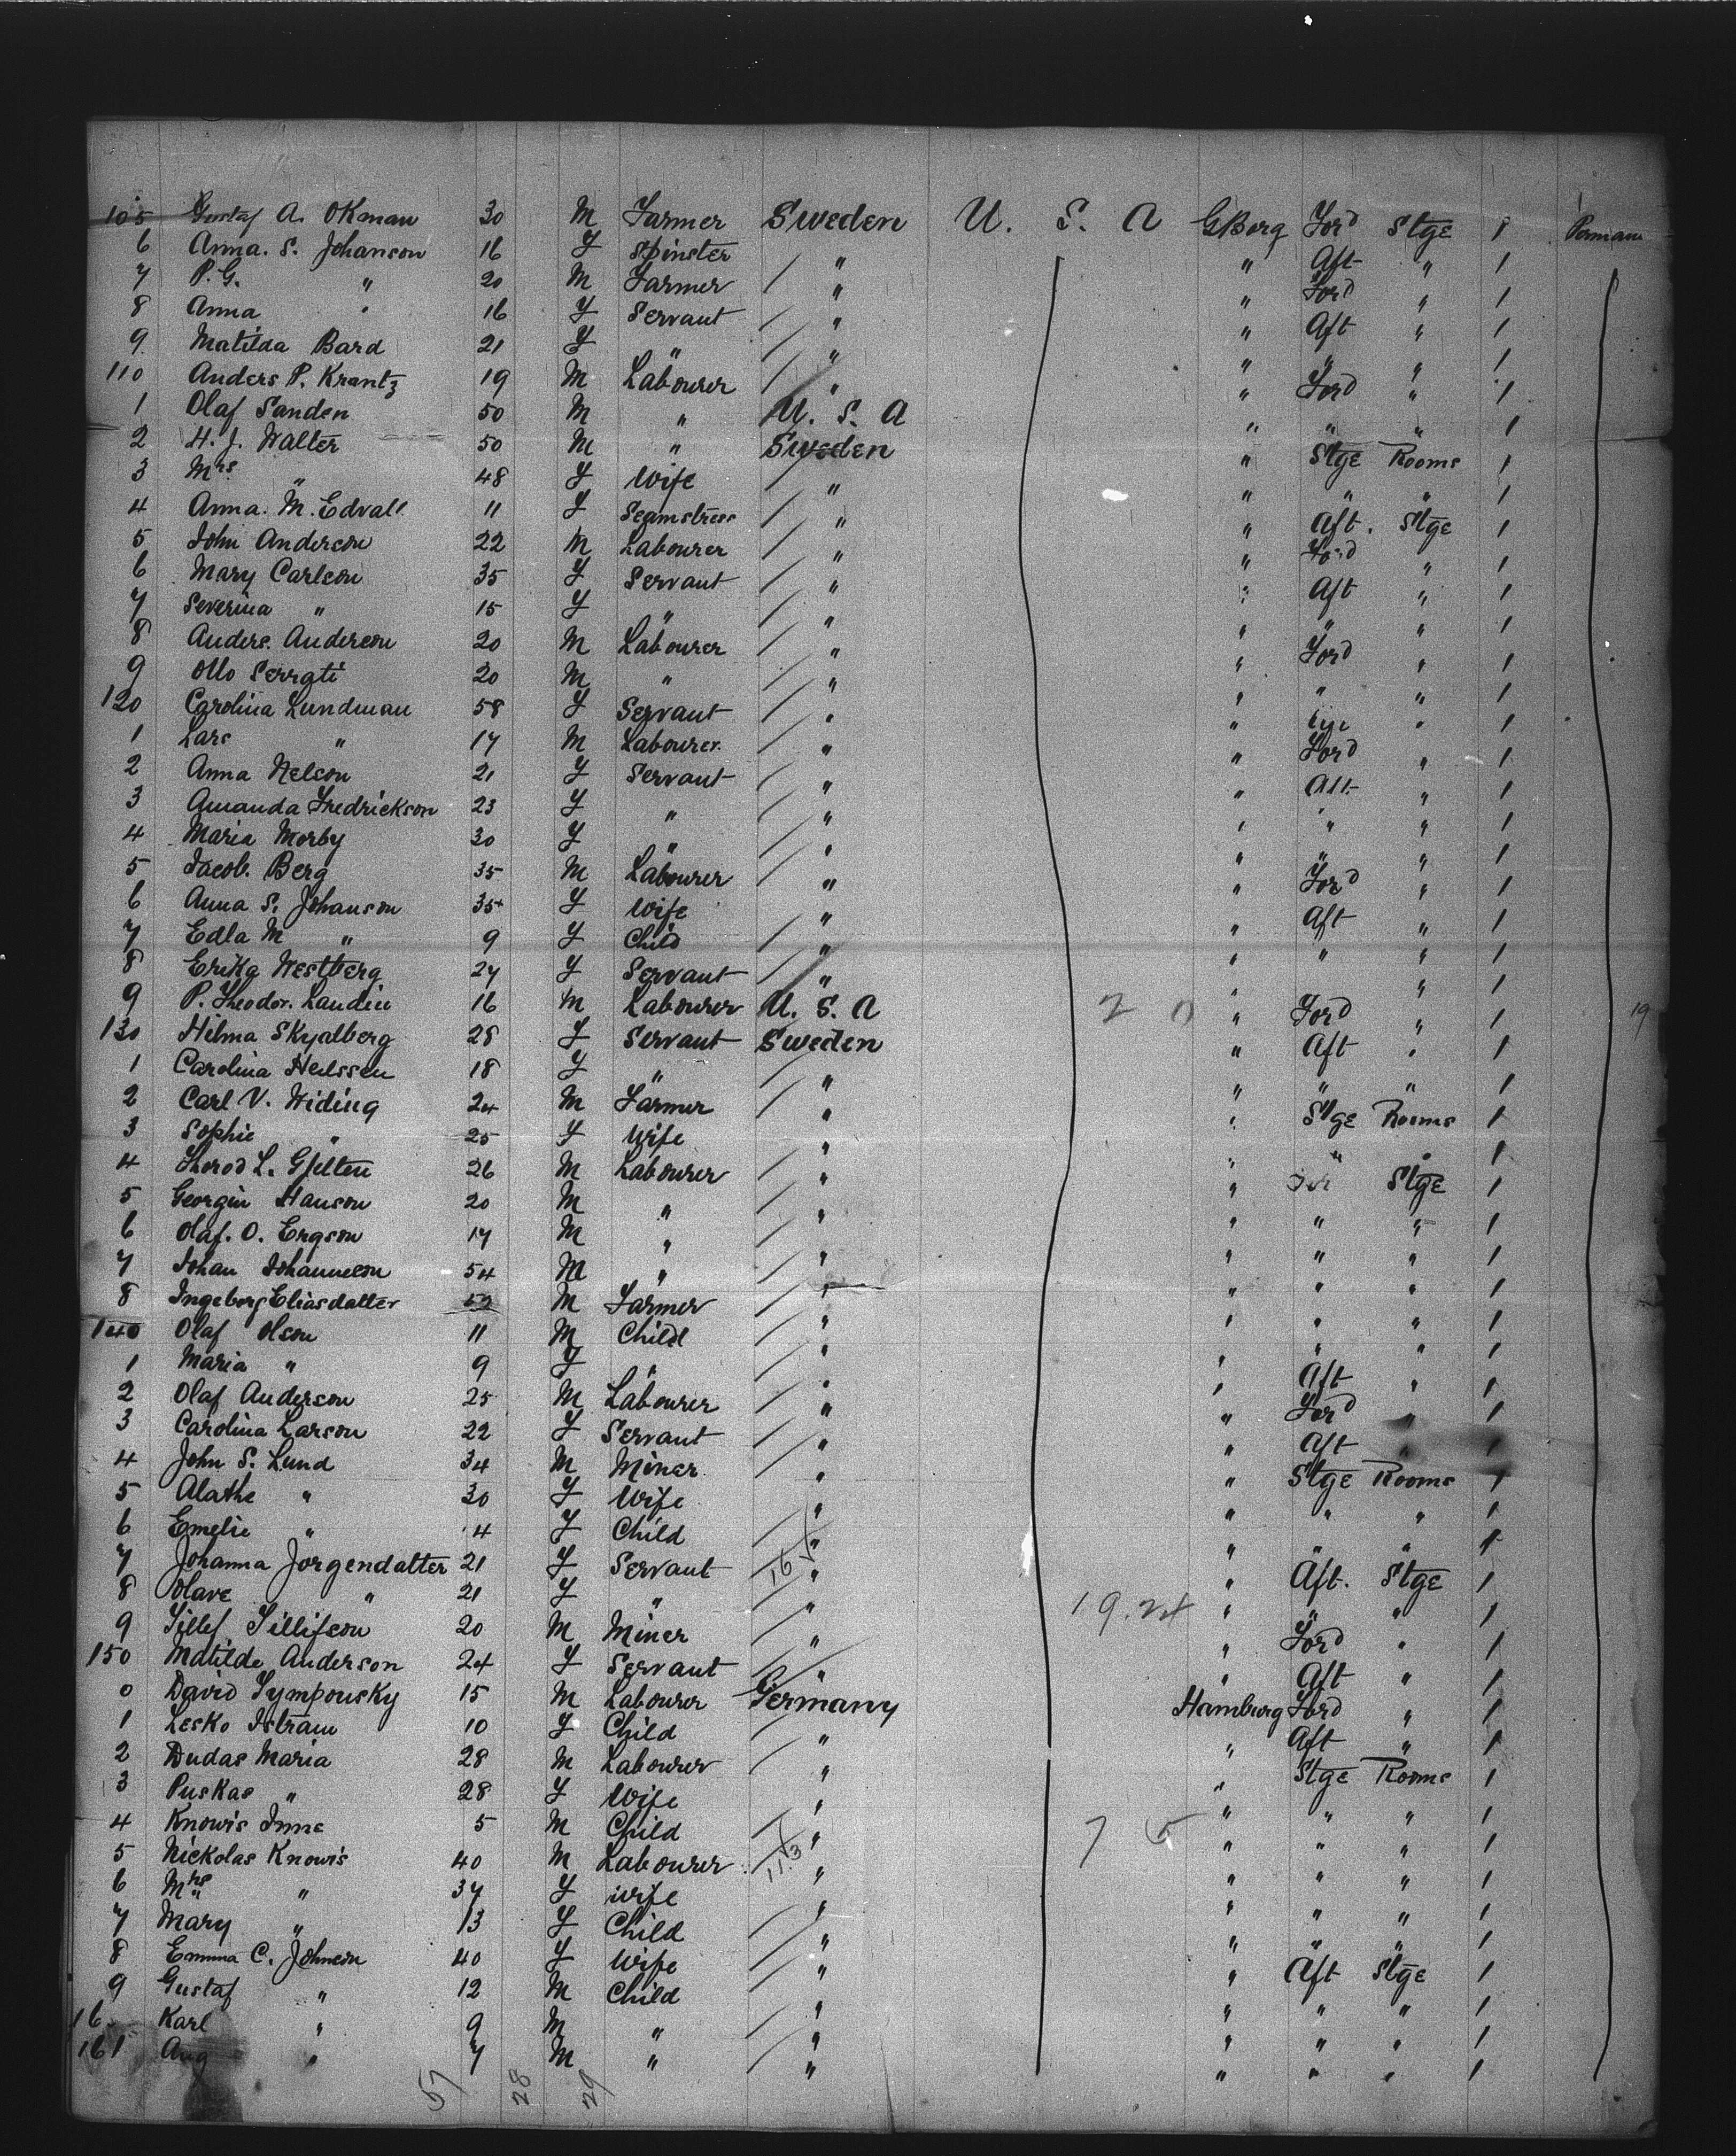 105 Gustaf A. Okman 30 M Farmer Sweden U. S. A GBorg Ford Stge 1 Perman
6 Anna. S. Johanson 16 F Spinster " " Aft " 1
7 P. G. " 20 M Farmer " " Ford " 1
8 Anna " 16 F Servant " " Aft " 1
9 Matilda Bard 21 F " " " " " 1
110 Anders P. Krantz 19 M Labourer " " Ford " 1
1 Olaf Sanden 50 M " U. S. A " " " 1
2 H. J. Walter 50 M " Sweden " Stge Rooms 1
3 Mrs " 48 F Wife " " " " 1
4 Anna. M. Edvall 11 F Seamstress " " Aft. Stge 1
5 John Anderson 22 M Labourer " " Ford " 1
6 Mary Carlson 35 F Servant " " Aft " 1
7 Severina " 15 F " " " " " 1
8 Anders. Anderson 20 M Labourer " " Ford " 1
9 Otto Serrati 20 M " " " " " 1
120 Carolina Lundman 58 F Servant " " " 1
1 Lars " 17 M Labourer. " " Ford " 1
2 Anna Nelson 21 F Servant " " Aft " 1
3 Amanda Fredrickson 23 F " " " " " 1
4 Maria Morby 30 F " " " " " 1
5 Jacob. Berg 35 M Labourer " " Ford " 1
6 Anna S. Johanson 35 F Wife " " Aft " 1
7 Edla M " 9 F Child " " " " 1
8 Erika Westberg 27 F Servant " " " 1
9 P. Theodor. Landin 16 M Labourer U. S. A 7 0 " Ford " 1 19
130 Hilma Skyalberg 28 F Servant Sweden " Aft " 1
1 Carolina Heilssen 18 F " " " " " 1
2 Carl V. Widing 24 M Farmer " " Stge Rooms 1
3 Sophie " 25 F Wife " " " " 1
4 L. Gjelten 26 M Labourer " " For Stge 1
5 Georgin Hanson 20 M " " " " " 1
6 Olaf. O. Ergson 17 M " " " " " 1
7 Johan Johannson 54 M " " " " " 1
8 Ingeborg Eliasdatter M Farmer " " " " 1
140 Olaf Olson 11 M Child " " " " 1
1 Maria " 9 F " " " Aft " 1
2 Olaf Anderson 25 M Labourer " " Ford " 1
3 Carolina Larson 22 F Servant " " Aft " 1
4 John S. Lund 34 M Miner " " Stge Rooms 1
5 Alathe " 30 F Wife " " " " 1
6 Emelie " 4 F Child " " " " 1
7 Johanna Jorgendatter 21 F Servant 16 " " Aft. Stge 1
8 Olave " 21 F " " 19.24 " " " 1
9 Tillef Tillifson 20 M Miner " " Ford " 1
150 Matilde Anderson 24 F Servant " " Aft " 1
0 David Sympousky 15 M Labourer Germany Hamburg Ford " 1
1 Lesko Istram 10 F Child " " Aft " 1
2 Dudas Maria 28 M Labourer " " Stge Rooms 1
3 Puskas " 28 F Wife " " " " 1
4 Knowis Inne 5 M Child " 7 5 " " " 1
5 Nickolas Knowis 40 M Labourer 11.3 " " " " 1
6 Mrs " 37 F Wife " " " " 1
7 Mary " 13 F Child " " " " 1
8 Emma C. Johnson 40 F Wife " " Aft Stge 1
9 Gustaf " 12 M Child " " " " 1
16 Karl " 9 M " " " " " 1
161 Aug " 7 M " " " " " 1
57 28 29